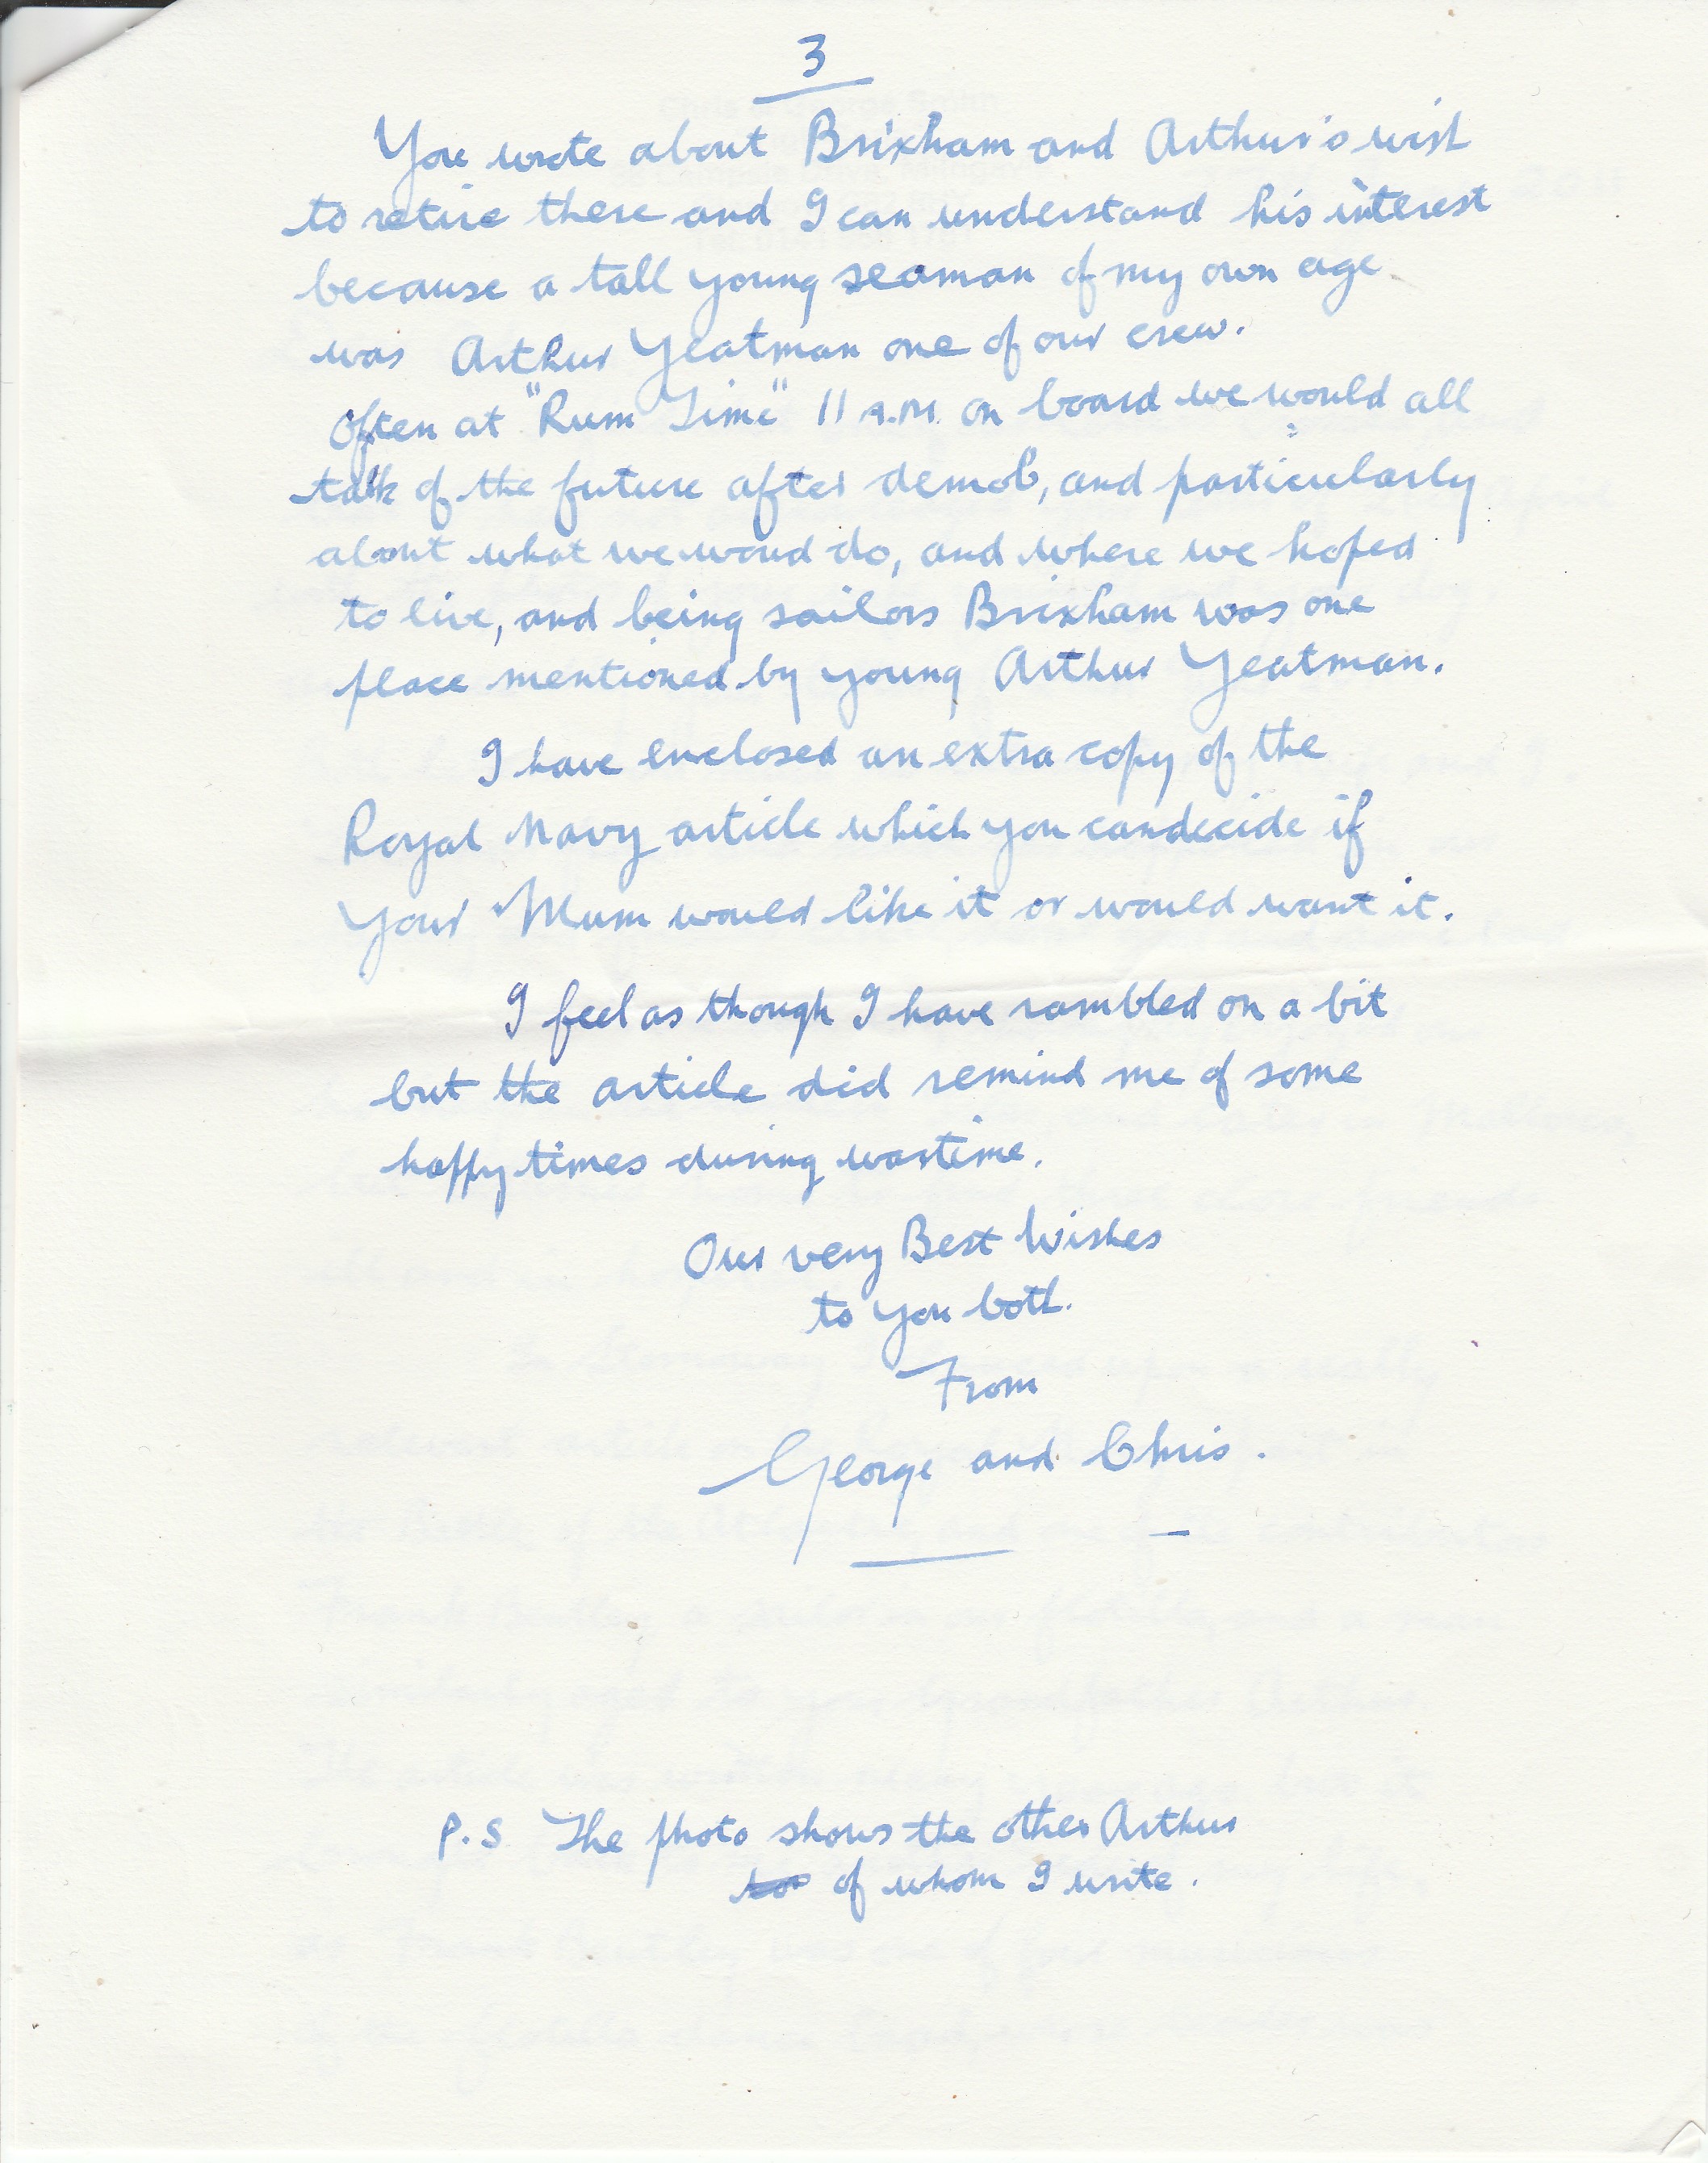 3
You wrote about Brixham and Arthur's wish
to retire there and I can understand his interest
because a tall young seaman of my own age
was Arthur Yeatman one of our crew.
Often at "Rum Time" 11 A.M. on board we would all
talk of the future after demob, and particularly
about what we woud do, and where we hoped
to live, and being sailors Brixham was one
place mentioned by young Arthur Yeatman.
I have enclosed an extra copy of the
Royal Navy article which you can decide if
Your Mum would like it or would want it.
I feel as though I have rambled on a bit
but the article did remind me of some
happy times during wartime.
Our very Best Wishes
to you both.
From
George and Chris.
P.S The photo shows the other Arthur
of whom I write.